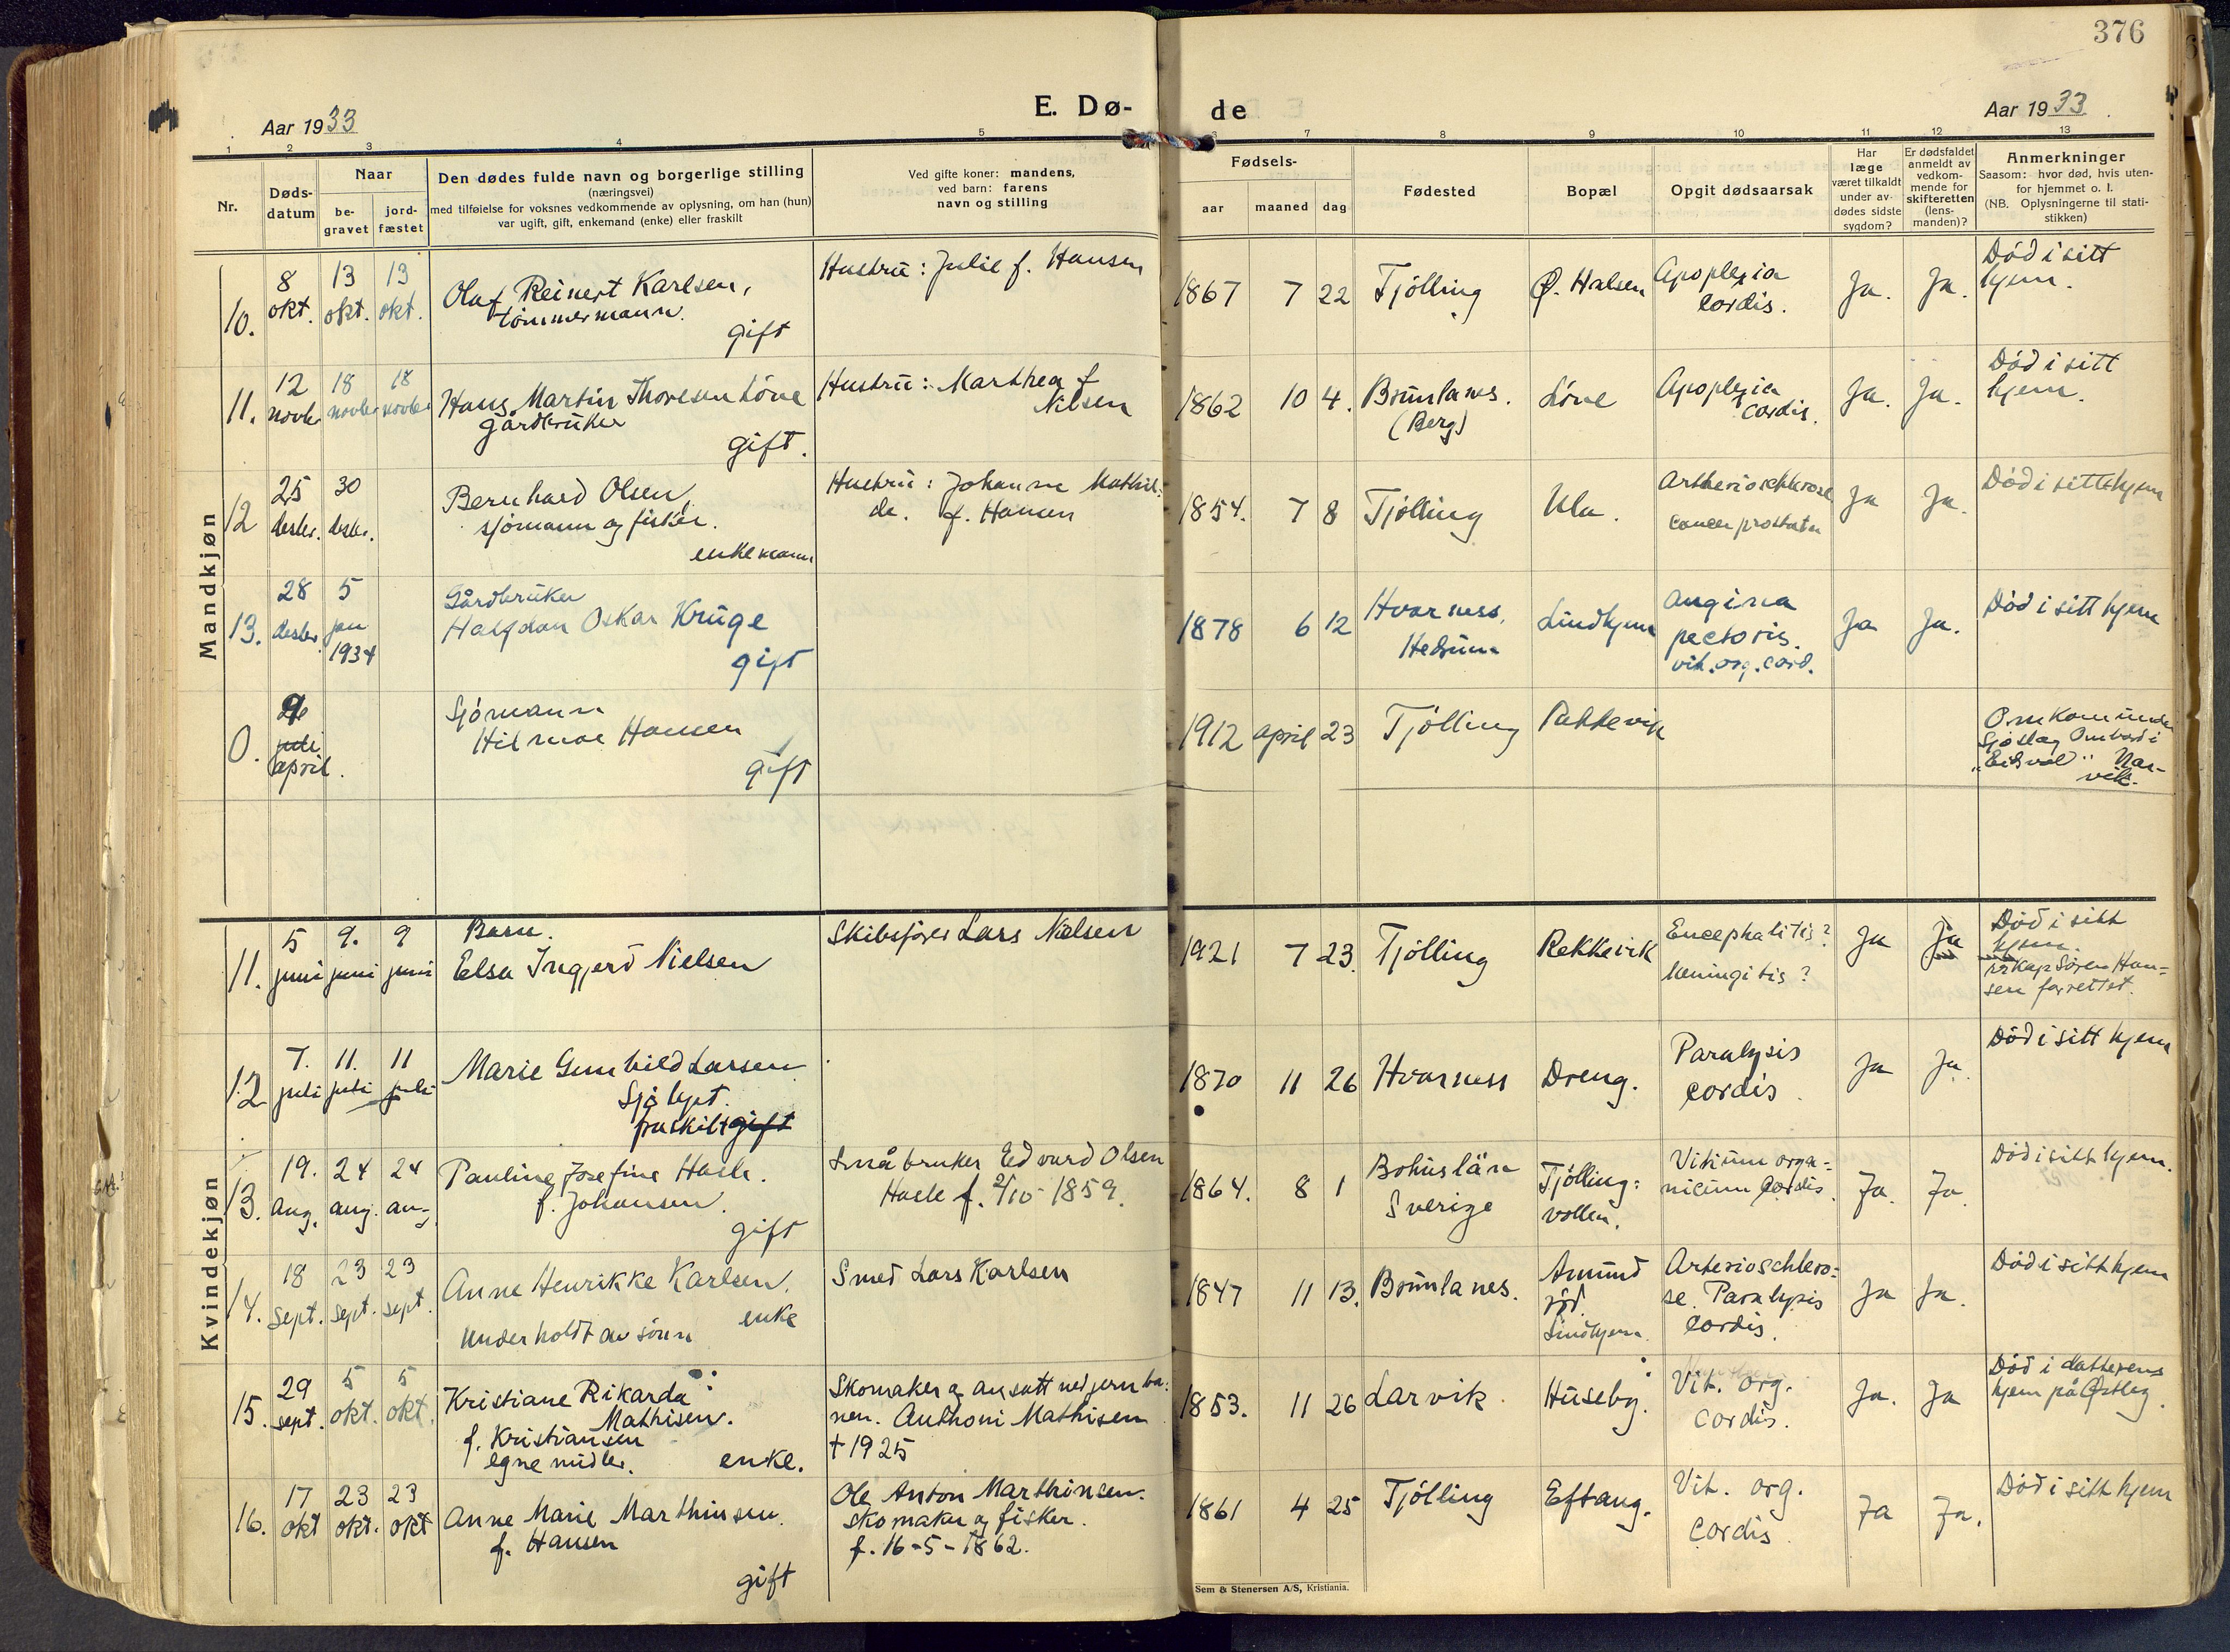 376
Aar 1933
E. Dø-
de
Aar 1933.
1 2 3 4 5 6 7 8 9 10 11 12 13
Nr.
Døds-
datum
Naar
be-
gravet
jord-
fæstet
Den dødes fulde navn og borgerlige stilling
(næringsvei)
med tilføielse for voksnes vedkommende av oplysning, om han (hun)
var ugift, gift, enkemand (enke) eller fraskilt
Ved gifte koner: mandens,
ved barn: farens
navn og stilling
Fødsels-
aar
maaned
dag
Fødested
Bopæl
Opgit dødsaarsak
Har
læge
været tilkaldt
under av-
dødes sidste
sygdom?
Er dødsfaldet
anmeldt av
vedkom-
mende for
skifteretten
(lens-
manden)?
Anmerkninger
Saasom: hvor død, hvis uten-
for hjemmet o. l.
(NB. Oplysningerne til stati-
stikken)
Mandkjøn
10.
8
okt.
13
okt.
13
okt.
Olaf Reinert Karlsen,
tømmermann.
gift
Hustru: Julie f. Hansen
1867 7 22
Tjølling
Ø. Halsen
Apoplexia
cordis.
Ja.
Ja.
Død i sitt
hjem.
11.
12
novbr
18
novbr
18
novbr
Hans Martin Thoresen Løve
gårdbruker
gift.
Hustru: Marthea f
Nilsen
1862 10 4.
Brunlanes.
(Berg)
Løve
Apoplexia
cordis.
Ja.
Ja.
Død i sitt
hjem.
12
25
desbr.
30
desbr.
Bernhard Olsen,
sjømann og fisker.
enkemann
Hustru: Johanne Mathil-
de. f. Hansen
1854. 7 8
Tjølling
Ula.
Artherioschlerose
cancer prostata
Ja
Ja.
Død i sitt hjem
13.
28
desbr.
5
jan
1934
Gårdbruker
Halfdan Oskar Kruge
gift
1878 6 12
Hvarness,
Hedrum
Lindhjem
Angina
pectoris.
vit. org. cord.
Ja
Ja.
Død i sitt hjem
0.
9
juli
april.
Sjømann
Hilmar Hansen
gift
1912 april 23
Tjølling
Rekkevik
Omkom under
Sjøslag Ombord i
"Eidsvol" Nar-
vik.
Kvindekjøn
11.
5
juni
9.
juni
9
juni
Barn.
Elsa Ingjerd Nielsen
Skibsfører Lars Nielsen
1921 7 23.
Tjølling
Rekkevik
Encephalitis?
Meningitis?
Ja
Ja
Død i sitt
hjem.
Søren Han-
sen forrettet.
12
7.
juli
11.
juli
11
juli
Marie Gunhild Larsen
Sjølvst.
fraskilt gift
1870 11 26
Hvarness
Dreng.
Paralysis
cordis.
Ja
Ja.
Død i sitt hjem
13.
19.
aug.
24
aug.
24
aug
Pauline Josefine Hasle.
f. Johansen.
gift
Småbruker Edvard Olsen
Hasle f. 2/10-1859.
1864. 8 1
Bohuslän
Sverige
Tjølling-
vollen.
Vitium orga-
nicum cordis.
Ja.
Ja.
Død i sitt hjem.
14.
18
sept.
23
sept.
23
sept.
Anne Henrikke Karlsen.
enke
Underholdt av sønn
Smed Lars Karlsen
1847 11 13.
Brunlanes.
Amund
rød.
Lindhjem.
Arterioschlero-
se. Paralysis
cordis.
Ja
Ja.
Død i sitt hjem
15.
29
sept.
5
okt.
5
okt.
Kristiane Rikarda
Mathisen.
f. Kristiansen
egne midler. enke.
Skomaker og ansatt ved jernba-
nen. Anthoni Mathisen
† 1925
1853. 11 26
Larvik.
Huseby.
Vit. org.
cordis.
Ja.
Ja
Død i datterens
hjem på Østby.
16.
17
okt
23
okt.
23
okt
Anne Marie Marthinsen.
f. Hansen
gift
Ole Anton Marthinsen.
skomaker og fisker.
f. 16-5-1862.
1861 4 25
Tjølling
Eftang.
Vit. org.
cordis.
Ja
Ja.
Død i sitt hjem
Sem & Stenersen A/S, Kristiania.